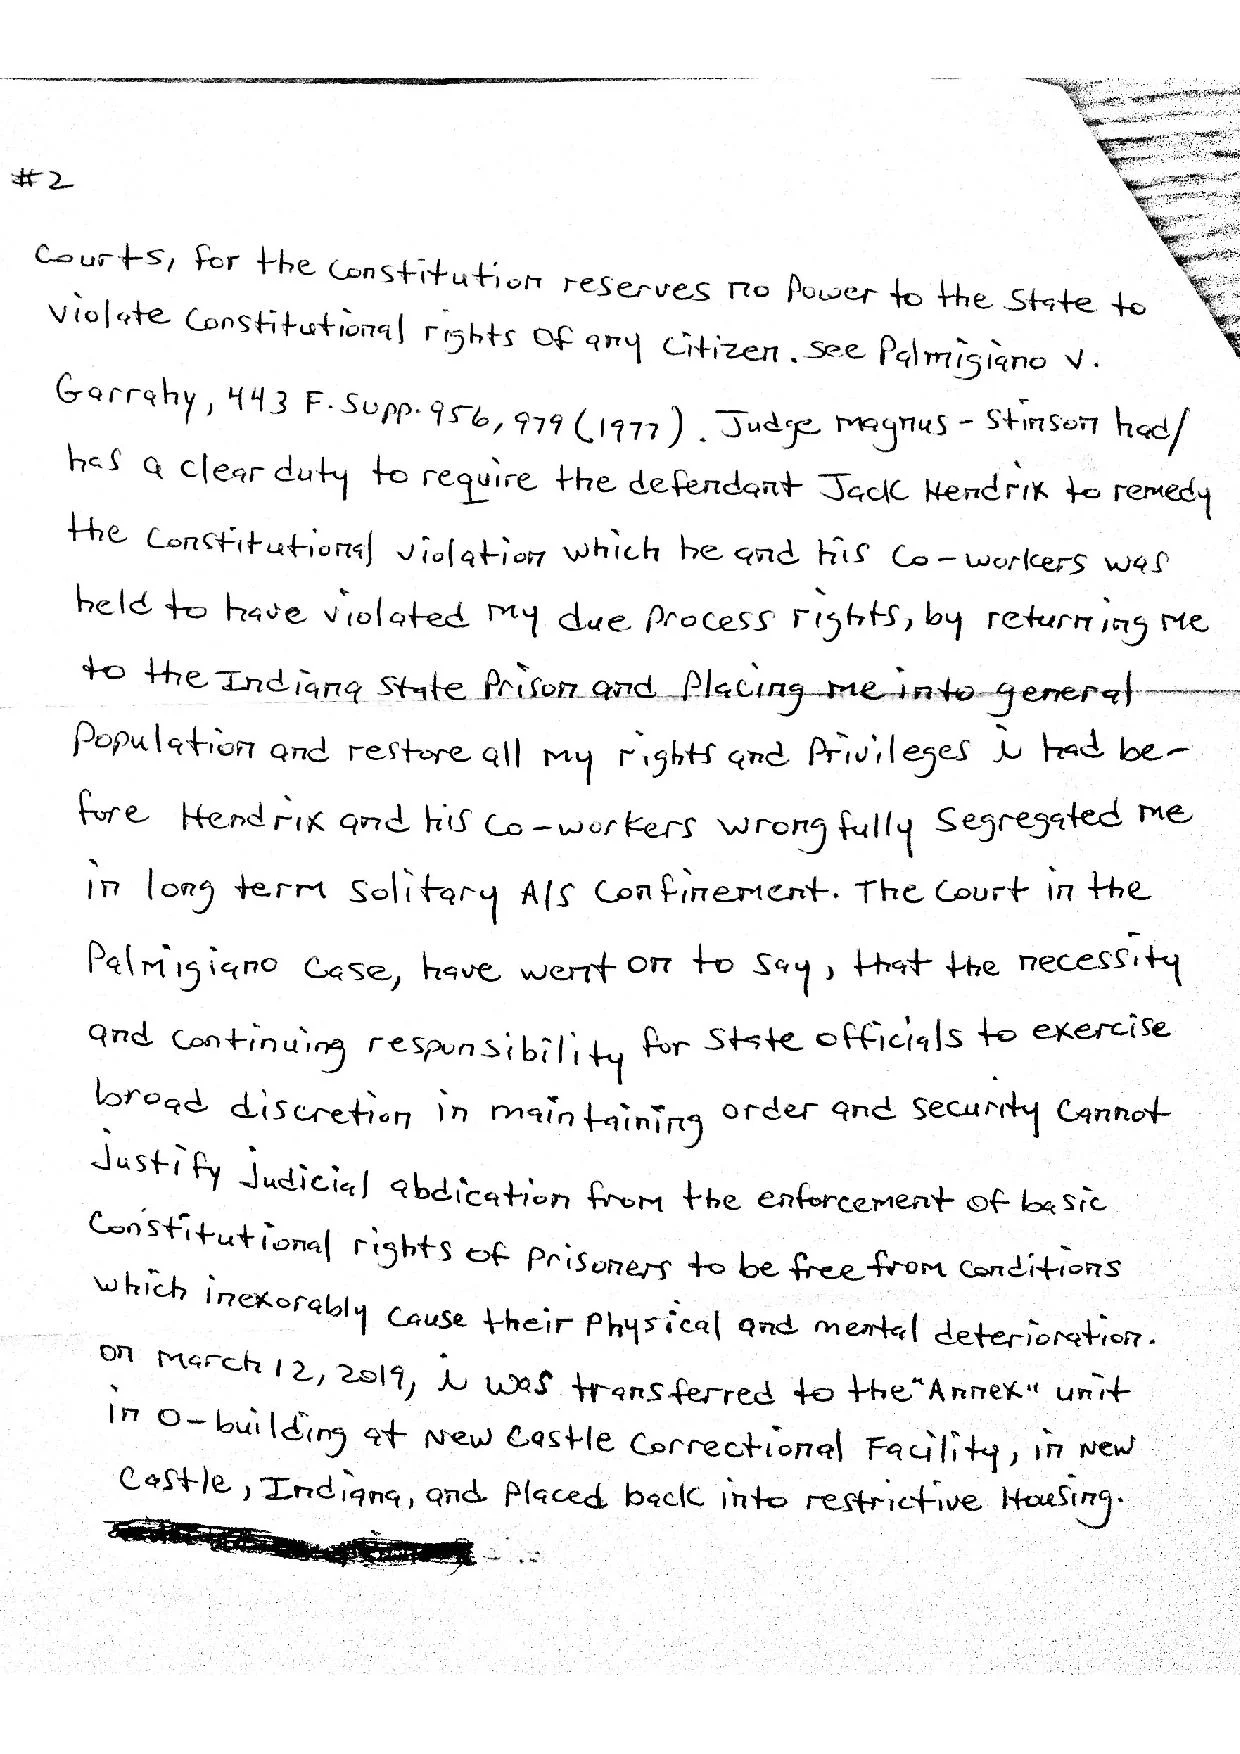 #2
Courts, for the Constitution reserves no Power to the State to
violate Constitutional rights of any Citizen. See Palmigiano v.
Garrahy, 443 F. Supp. 956, 979 (1977). Judge Magnus-Stinson had/
has a clear duty to require the defendant Jack Hendrix to remedy
the Constitutional violation which he and his Co-workers was
held to have violated my due Process rights, by returning me
to the Indiana State Prison and Placing me into general
Population and restore all my rights and Privileges i had be-
fore Hendrix and his Co-workers wrongfully Segregated me
in long term Solitary A/S Confinement. The Court in the
Palmigiano Case, have went on to say, that the necessity
and continuing responsibility for State officials to exercise
broad discretion in maintaining order and security Cannot
justify judicial abdication from the enforcement of basic
Constitutional rights of Prisoners to be free from Conditions
which inexorably Cause their Physical and mental deterioration.
on March 12, 2019, i was transferred to the "Annex" unit
in O-building at New Castle Correctional Facility, in New
Castle, Indiana, and Placed back into restrictive Housing.